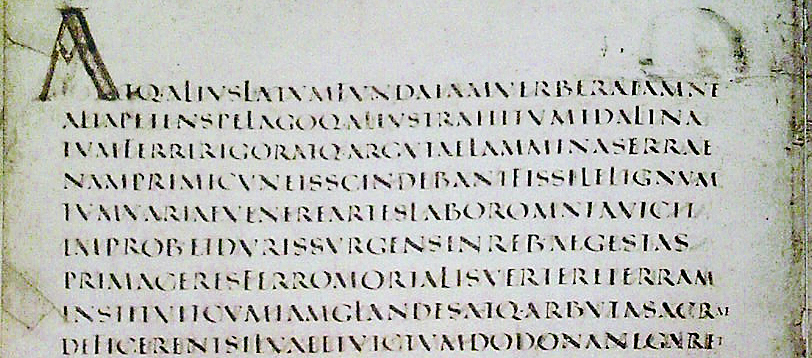 ATQALIVSLATVMFVNDAIAMVERBERATAMNE
ALTAPETENSPELAGOQALIVSTRAHITVMIDALINA
TVMFERRIRIGORATQARGVTAELAMMINASERRAE
NAMPRIMICVNEISSCINDEBANTFISSILELIGNVM
TVMVARIAEVENEREARTESLABOROMNIAVICIT
IMPROBETDVRISSVRGENSINREBAEGESTAS
PRIMACERESFERROMORTALISVERTERETERRAM
INSTITVITCVMIAMGLANDESATQARBVTASACRAE
DEFICERENTSILVAEETVICTVMDODONANEGARET